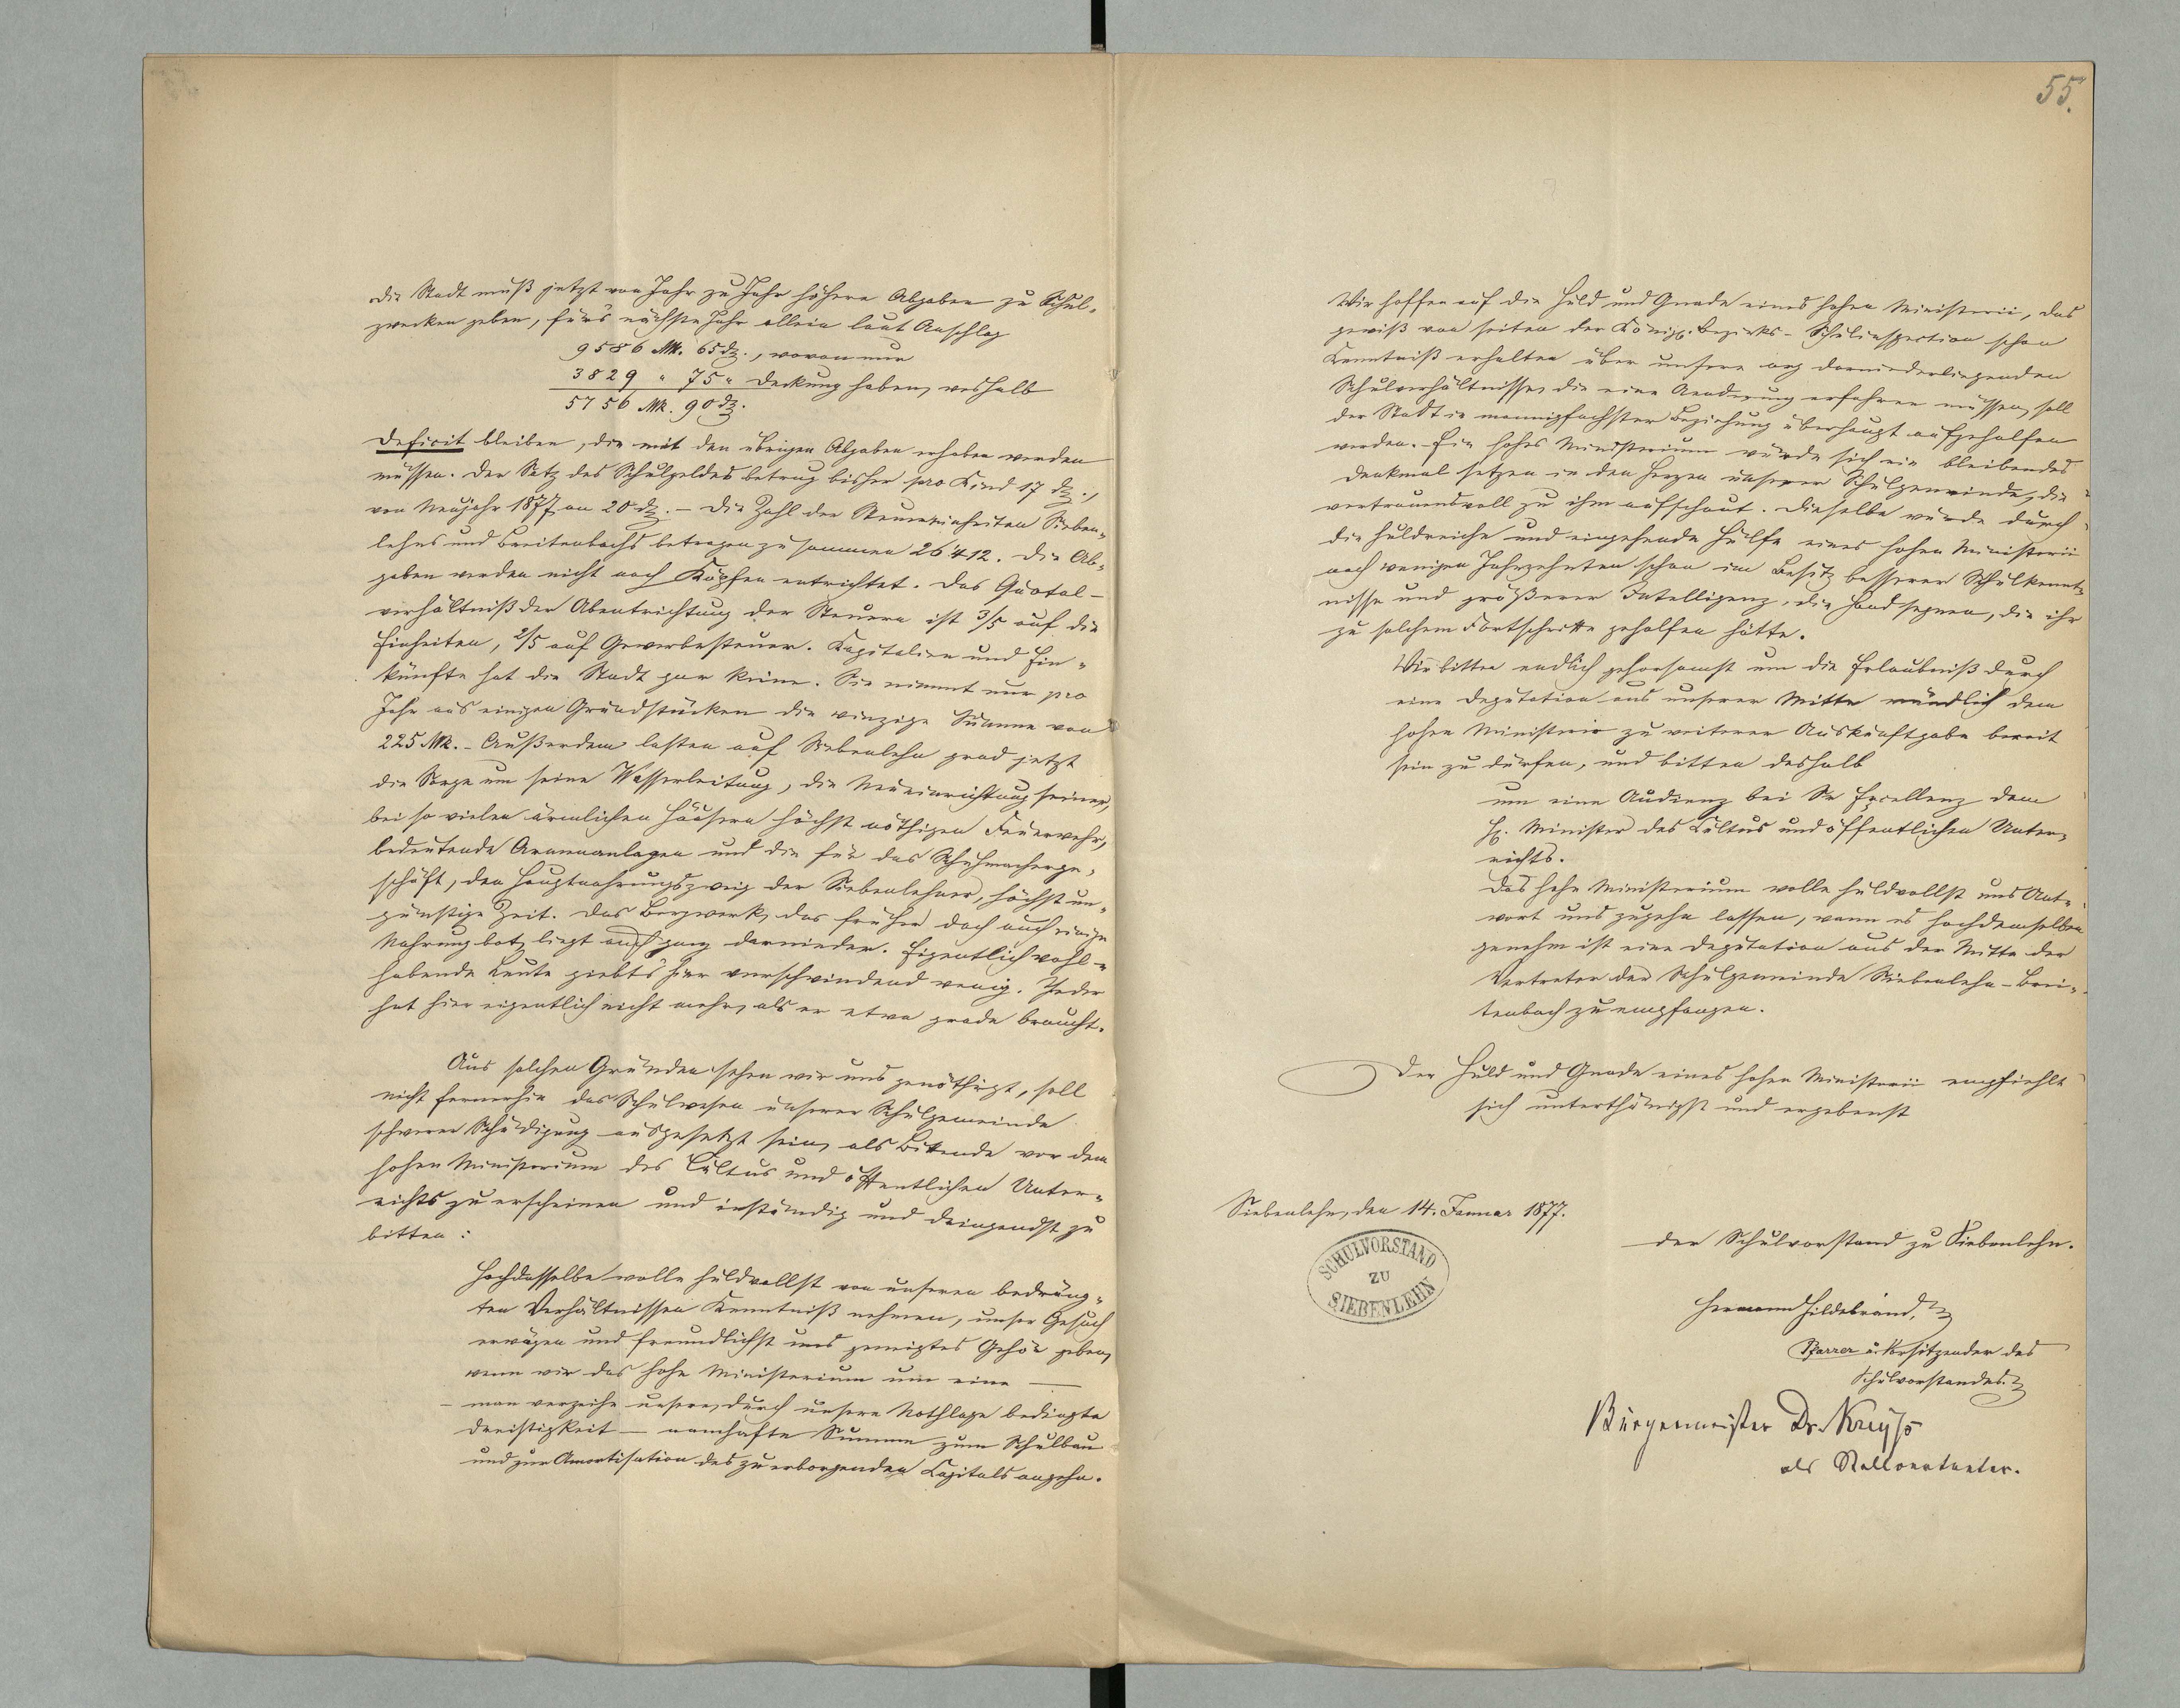 die Stadt muß jetzt von Jahr zu Jahr höhere Abgaben zu Schul-
zwecken geben, für's nächste Jahr allein laut Anschlag
9586 Mk. 65 d., wovon nur
3829 " 75 " Deckung haben, weshalb
5756 Mk. 90 d.
Deficit bleiben, die mit den übrigen Abgaben erhoben werden
müssen. Der Satz des Schulgeldes betrug bisher pro Kind 17 d.,
von Neujahr 1877 an 20 d. – Die Zahl der Steuereinheiten Sieben-
lehns und Breitenbachs betragen zusammen 26412. Die Ab-
gaben werden nicht nach Köpfen entrichtet. Das Quotal-
verhältniß der Abentrichtung der Steuern ist 3/5 auf die
Einheiten, 2/5 auf Gewerbesteuer. Kapitalien und Ein-
künfte hat die Stadt gar keine. Sie nimmt nur pro
Jahr aus einigen Grundstücken die winzige Summe von
225 Mk. – Außerdem lasten auf Siebenlehn grad jetzt
die Sorge um seine Wasserleitung, die Neueinrichtung seiner,
bei so vielen ärmlichen Häusern höchst nöthigen Feuerwehr,
bedeutende Armenanlagen und die für das Schuhmacherge-
schäft, den Hauptnahrungszweig der Siebenlehner, höchst un-
günstige Zeit. Das Bergwerk, das früher doch auch einige
Nahrung bot, liegt auch ganz darnieder. Eigentlich wohl-
habende Leute giebt's hier verschwindend wenig. Jeder
hat hier eigentlich nicht mehr, als er etwa grade braucht.
Aus solchen Gründen sehen wir uns genöthigt, soll
nicht fernerhin das Schulwesen unserer Schulgemeinde
schwerer Schädigung ausgesetzt sein, als Bittende vor dem
hohen Ministerium des Cultus und öffentlichen Unter-
richts zu erscheinen und inständig und dringendst zu
bitten:
Hochdasselbe wolle huldvollst von unseren bedräng-
ten Verhältnissen Kenntniß nehmen, unser Gesuch
erwägen und freundlichst uns geneigtes Gehör geben,
wenn wir das hohe Ministerium um eine —
– man verzeihe unsere, durch unsere Nothlage bedingte
Dreistigkeit – namhafte Summe zum Schulbau
und zur Amortisation des zu erborgenden Capitals angehn.
55.
Wir hoffen auf die Huld und Gnade eines hohen Ministerii, das
gewiß von seiten der Königl. Bezirks-Schulinspection schon
Kenntniß erhalten über unsere arg darniederliegenden
Schulverhältnisse, die eine Aenderung erfahren müssen, soll
der Stadt in mannigfachster Beziehung überhaupt aufgeholfen
werden. Ein hohes Ministerium würde sich ein bleibendes
Denkmal setzen in den Herzen unserer Schulgemeinde, die
vertrauensvoll zu ihm aufschaut. Dieselbe würde durch
die huldreiche und eingehende Hülfe eines hohen Ministerii
nach wenigen Jahrzehnten schon im Besitz besserer Schulkennt-
nisse und größerer Intelligenz, die Hand segnen, die ihr
zu solchem Fortschritte geholfen hätte.
Wir bitten endlich gehorsamst um die Erlaubniß durch
eine Deputation aus unserer Mitte mündlich dem
hohen Ministerio zu weiterer Auskunftgabe bereit
sein zu dürfen, und bitten deshalb
um eine Audienz bei Sr Excellenz dem
H. Minister des Cultus und öffentlichen Unter-
richts.
Das hohe Ministerium wolle huldvollst uns Ant-
wort uns zugehn lassen, wann es hochdemselben
genehm ist eine Deputation aus der Mitte der
Vertreter der Schulgemeinde Siebenlehn-Brei-
tenbach zu empfangen.
Der Huld und Gnade eines hohen Ministerii empfiehlt
sich unterthänigst und ergebenst
Siebenlehn, den 14. Januar 1877.
SCHULVORSTAND
ZU
SIEBENLEHN
der Schulvorstand zu Siebenlehn.
Hermann Hildebrand,
Pfarrer u. Vorsitzender des
Schulvorstandes.
Bürgermeister Dr.
als